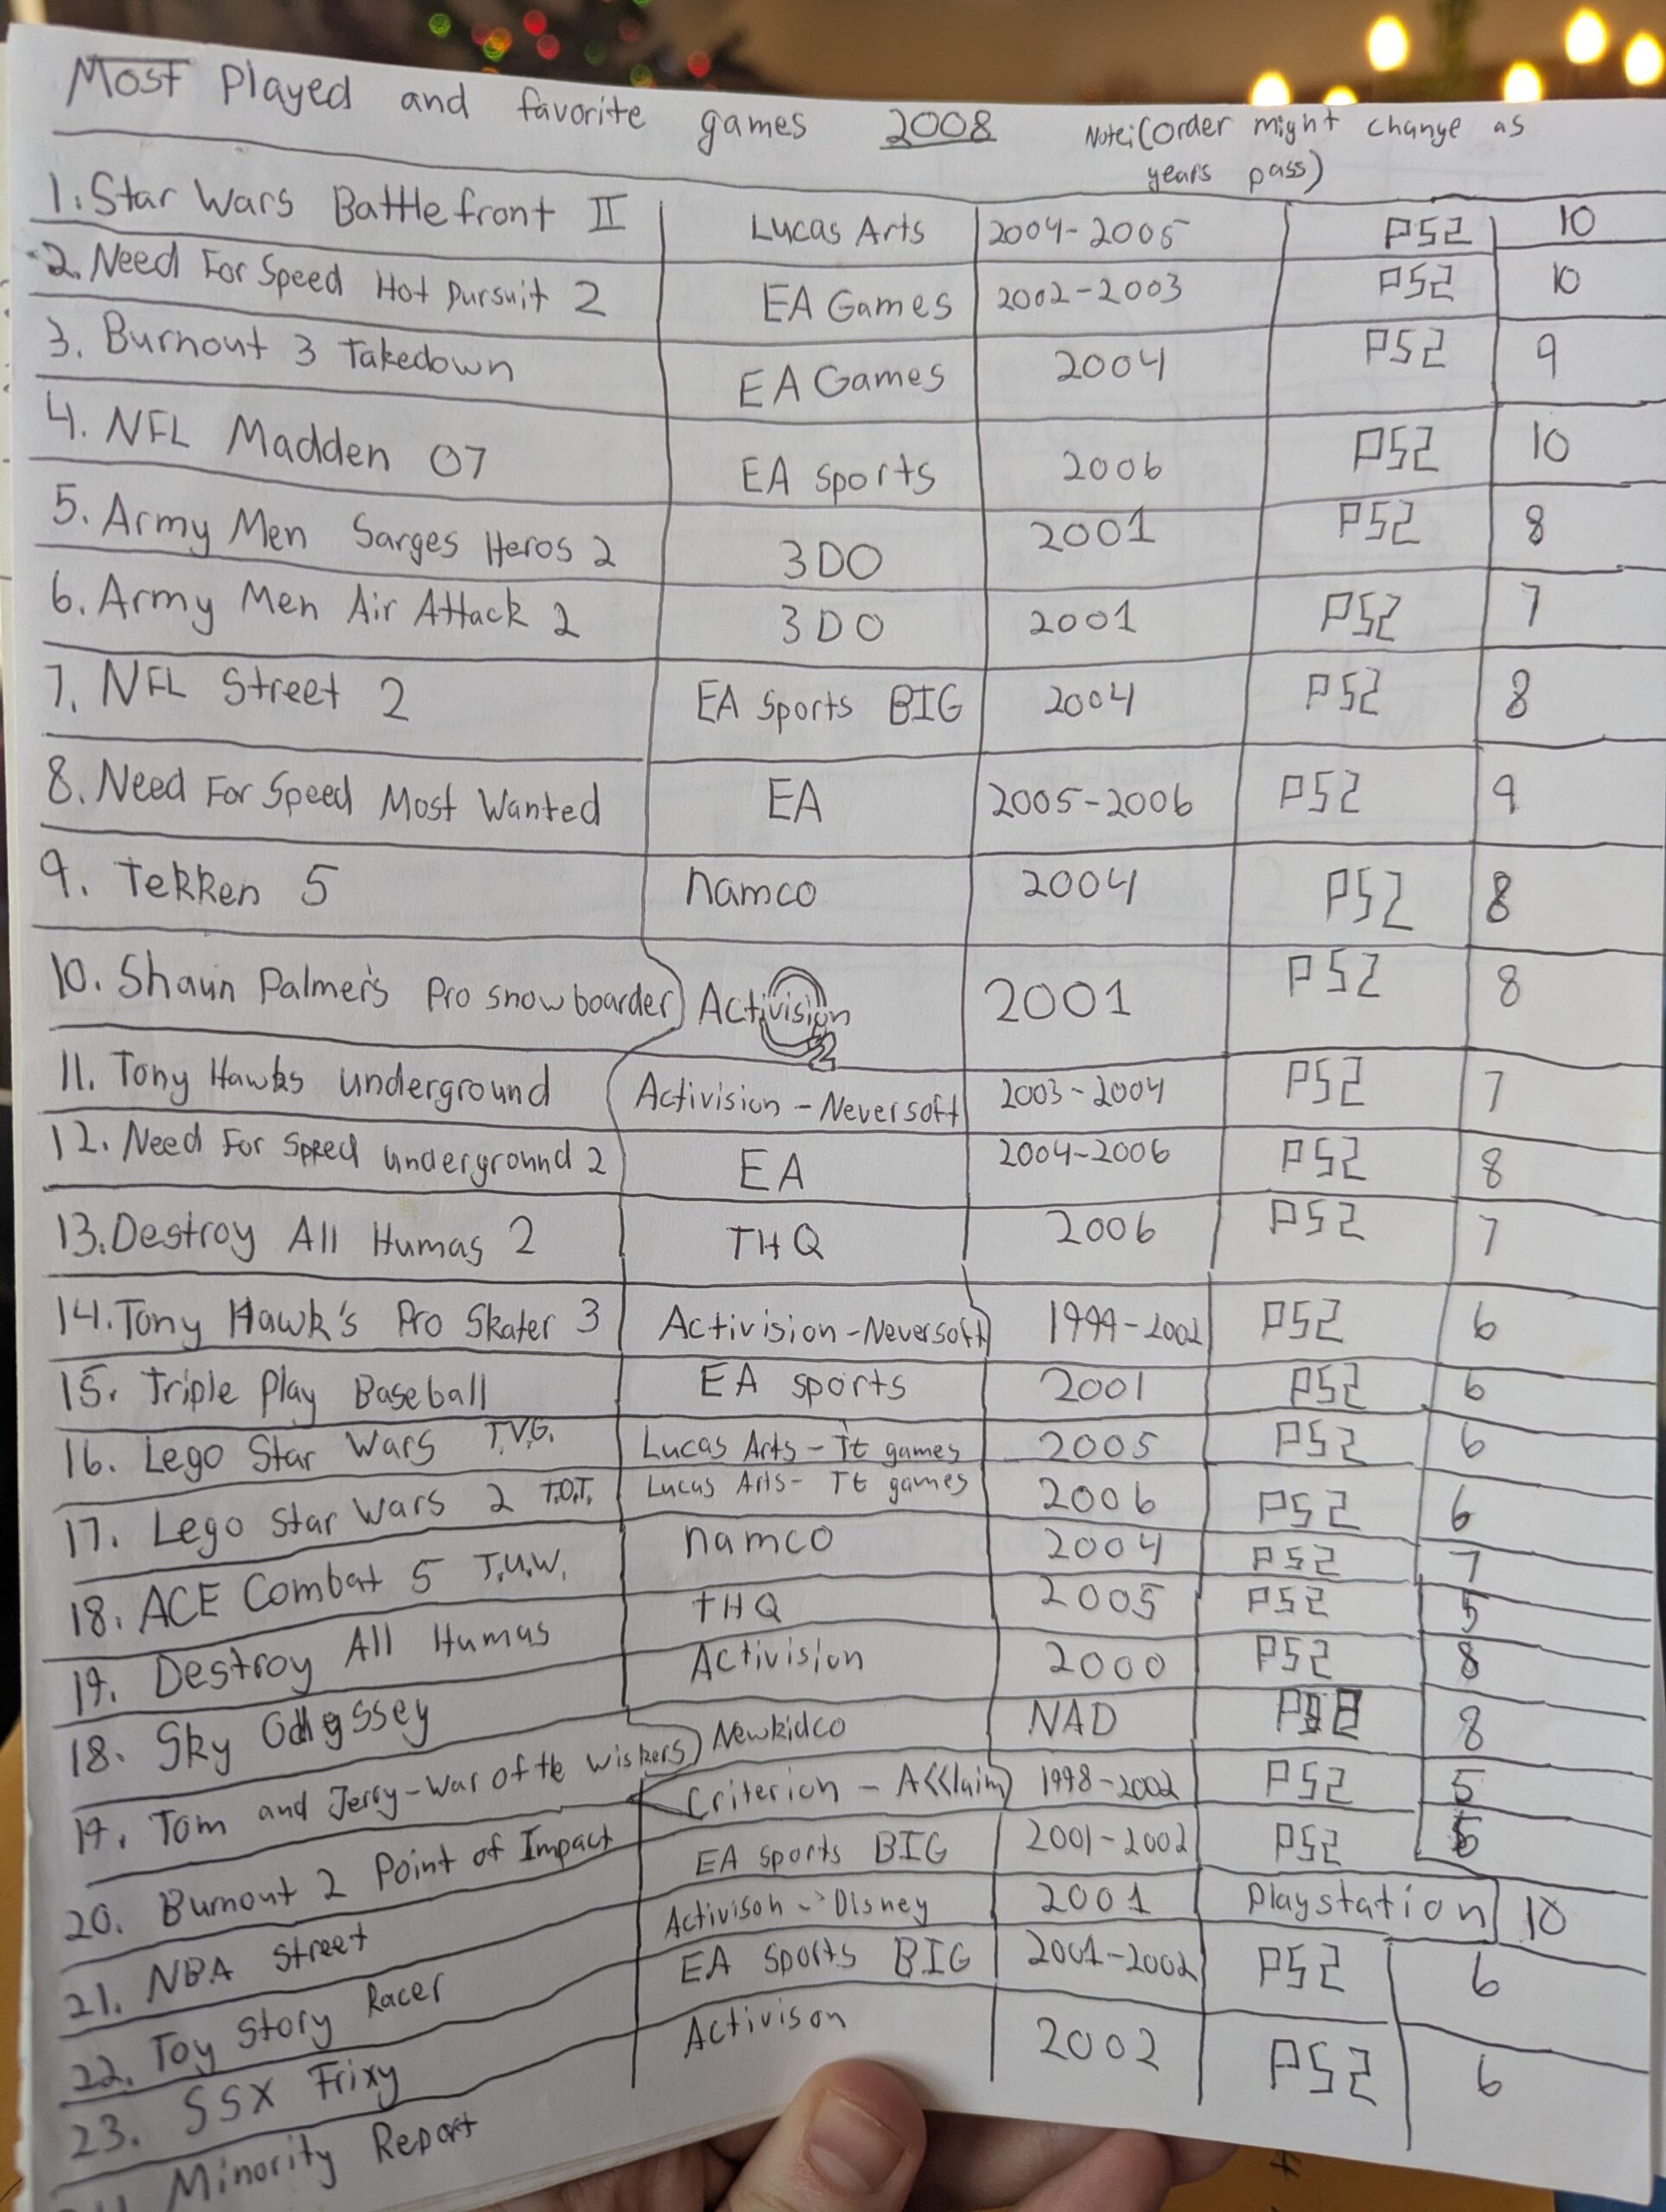 Most Played and favorite games 2008 Note:(order might change as
years pass)
1. Star Wars Battlefront II Lucas Arts 2004-2005 PS2 10
2. Need For Speed Hot Pursuit 2 EA Games 2002-2003 PS2 10
3. Burnout 3 Takedown EA Games 2004 PS2 9
4. NFL Madden 07 EA sports 2006 PS2 10
5. Army Men Sarges Heros 2 3DO 2001 PS2 8
6. Army Men Air Attack 2 3DO 2001 PS2 7
7. NFL Street 2 EA Sports BIG 2004 PS2 8
8. Need For Speed Most Wanted EA 2005-2006 PS2 9
9. Tekken 5 namco 2004 PS2 8
10. Shaun Palmer's Pro snowboarder Activision 2001 PS2 8
11. Tony Hawks underground Activision-Neversoft 2003-2004 PS2 7
12. Need For Speed underground 2 EA 2004-2006 PS2 8
13. Destroy All Humas 2 THQ 2006 PS2 7
14. Tony Hawk's Pro Skater 3 Activision-Neversoft 1999-2002 PS2 6
15. Triple Play Baseball EA sports 2001 PS2 6
16. Lego Star Wars T.V.G. Lucas Arts - Tt games 2005 PS2 6
17. Lego Star Wars 2 T.O.T. Lucas Arts - Tt games 2006 PS2 6
18. ACE Combat 5 T.U.W. namco 2004 PS2 7
19. Destroy All Humas THQ 2005 PS2 5
18. Sky Odyssey Activision 2000 PS2 8
19. Tom and Jerry-War of the Wiskers Newkidco NAD PS2 8
20. Burnout 2 Point of Impact Criterion - Acclaim 1998-2002 PS2 5
21. NBA Street EA sports BIG 2001-2002 PS2 5
22. Toy Story Racer Activison - Disney 2001 Playstation 10
23. SSX Trixy EA Sports BIG 2001-2002 PS2 6
Minority Report Activison 2002 PS2 6